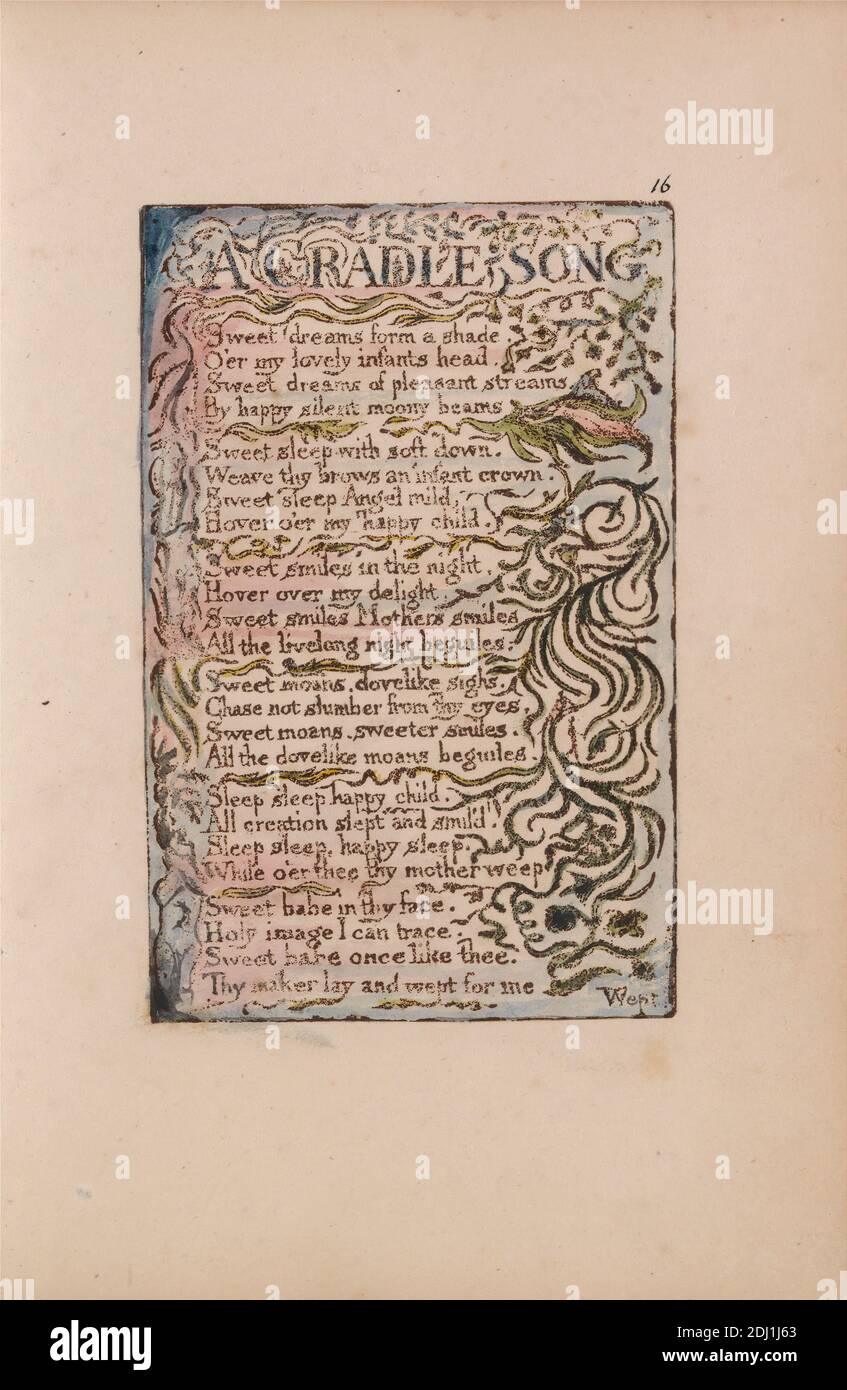 16
A CRADLE SONG
Sweet dreams form a shade.
O'er my lovely infants head.
Sweet dreams of pleasant streams,
By happy silent moony beams
Sweet sleep with soft down.
Weave thy brows an infant crown.
Sweet sleep Angel mild,
Hover o'er my happy child.
Sweet smiles in the night,
Hover over my delight.
Sweet smiles Mothers smiles
All the livelong night beguiles.
Sweet moans, dovelike sighs,
Chase not slumber from thy eyes.
Sweet moans, sweeter smiles.
All the dovelike moans beguiles.
Sleep sleep happy child.
All creation slept and smil'd.
Sleep sleep, happy sleep,
While o'er thee thy mother weep
Sweet babe in thy face,
Holy image I can trace.
Sweet babe once like thee.
Thy maker lay and wept for me
Wept
alamy
Image ID: 2DJ1J63
www.alamy.com